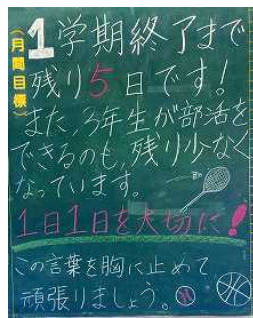 (月間目標)
1学期終了まで
残り5日です!
また、3年生が部活を
できるのも、残り少なく
なっています。
1日1日を大切に!
この言葉を胸に止めて
頑張りましょう。